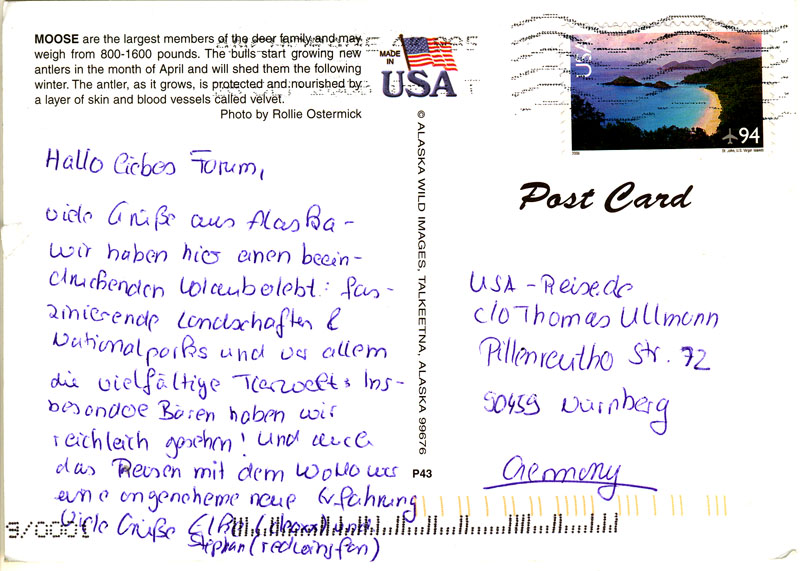 MOOSE are the largest members of the deer family and may
weigh from 800-1600 pounds. The bulls start growing new
antlers in the month of April and will shed them the following
winter. The antler, as it grows, is protected and nourished by
a layer of skin and blood vessels called velvet.
Photo by Rollie Ostermick
MADE
IN
USA
USA
94
Post Card
© ALASKA WILD IMAGES, TALKEETNA, ALASKA 99676
P43
Hallo liebes Forum,
viele Grüße aus Alaska -
wir haben hier einen beein-
druckenden Urlaub erlebt: fas-
zinierende Landschaften &
Nationalparks und vor allem
die vielfältige Tierwelt. Ins-
besondere Bären haben wir
reichleich gesehen! Und auch
das Reisen mit dem WoMo war
eine angenehme neue Erfahrung
Viele Grüße
Stephan (redwingfan)
USA-Reise.de
c/o Thomas Ullmann
Pillenreuther Str. 72
90459 Nürnberg
Germany